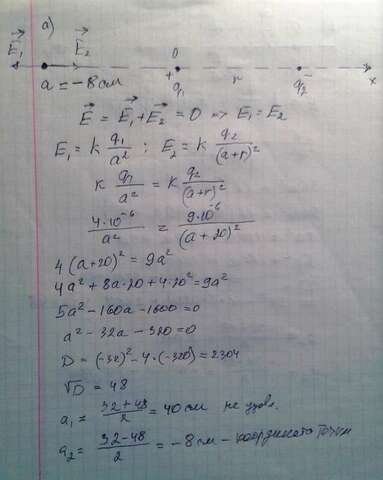 а)
E₁ E₂
a = -8 см 0 + q₁ r - q₂ x
E = E₁ + E₂ = 0 => E₁ = E₂
E₁ = k q₁/a² ; E₂ = k q₂/(a+r)²
k q₁/a² = q₂/(a+r)² k
4·10⁻⁶/a² = 9·10⁻⁶/(a+20)²
4(a+20)² = 9a²
4a² + 8a·20 + 4·20² = 9a²
5a² - 160a - 1600 = 0
a² - 32a - 320 = 0
D = (-32)² - 4·(-320) = 2304
√D = 48
a₁ = (32+48)/2 = 40 см не удов.
a₂ = (32-48)/2 = -8 см - координата точки